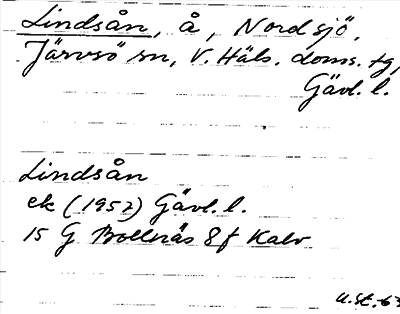 Lindsån, å, Nordsjö,
Järvsö sn, V. Häls. doms. tg,
Gävl. l.
Lindsån
ek (1952) Gävl. l.
15 G Bollnäs 8f Kalv
U. St. -63